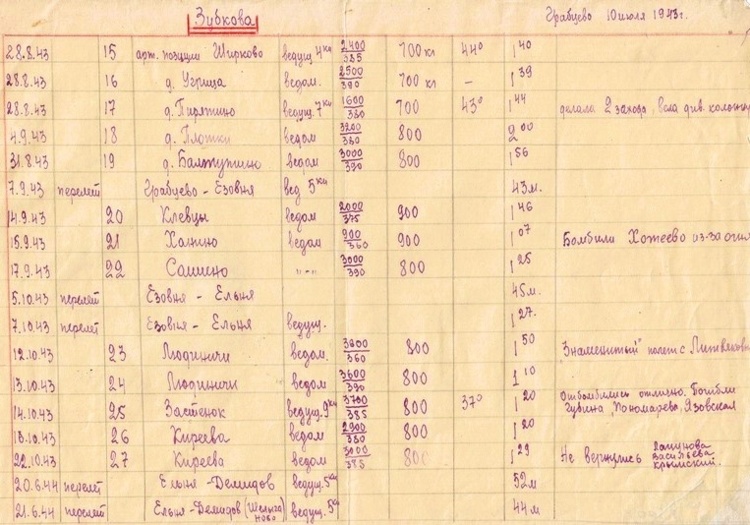 Зубкова Грабцево 10 июля 1943г.
28.8.43 15 арт. позиции Ширково ведущ 4ка 2400/385 700 кг 44° 1 40
28.8.43 16 д. Угрица ведом. 2500/390 700 кг – 1 39
28.8.43 17 д. Пирятино ведущ. 7ка 1600/380 700 43° 1 44 делала 2 захода, вела див. колонну
4.9.43 18 д. Плотки ведом 3200/380 800 2 00
31.8.43 19 д. Балтутино ведом 3000/390 800 1 56
7.9.43 перелёт Грабцево - Езовня вед 5ки 43м.
14.9.43 20 Клевцы ведом 2000/375 900 1 46
15.9.43 21 Ханино ведом 900/360 900 1 07 Бомбили Хотеево из-за огня
17.9.43 22 "-" 3000/390 800 1 25
5.10.43 перелёт Езовня - Ельня 45м.
7.10.43 перелёт Езовня - Ельня ведущ. 1 27.
12.10.43 23 Людиничи ведом. 3600/360 800 1 50 Знаменитый" полет с
13.10.43 24 Людиничи ведом 3600/390 800 1 10
14.10.43 25 Застенок ведущ. 9ки 3700/385 800 37° 1 20 Отбомбились отлично. Погибли Губина, Пономарева, Язовская
26 Киреева ведом 2900/380 800 1 20
22.10.43 27 Киреева ведом 3000/385 800 1 29 Не вернулись Лапунова Васильева Крымский.
20.6.44 перелёт Ельня-Демидов ведущ. 5ки 52м
21.6.44 перелёт Ельня-Демидов ведущ. 5ки 44м